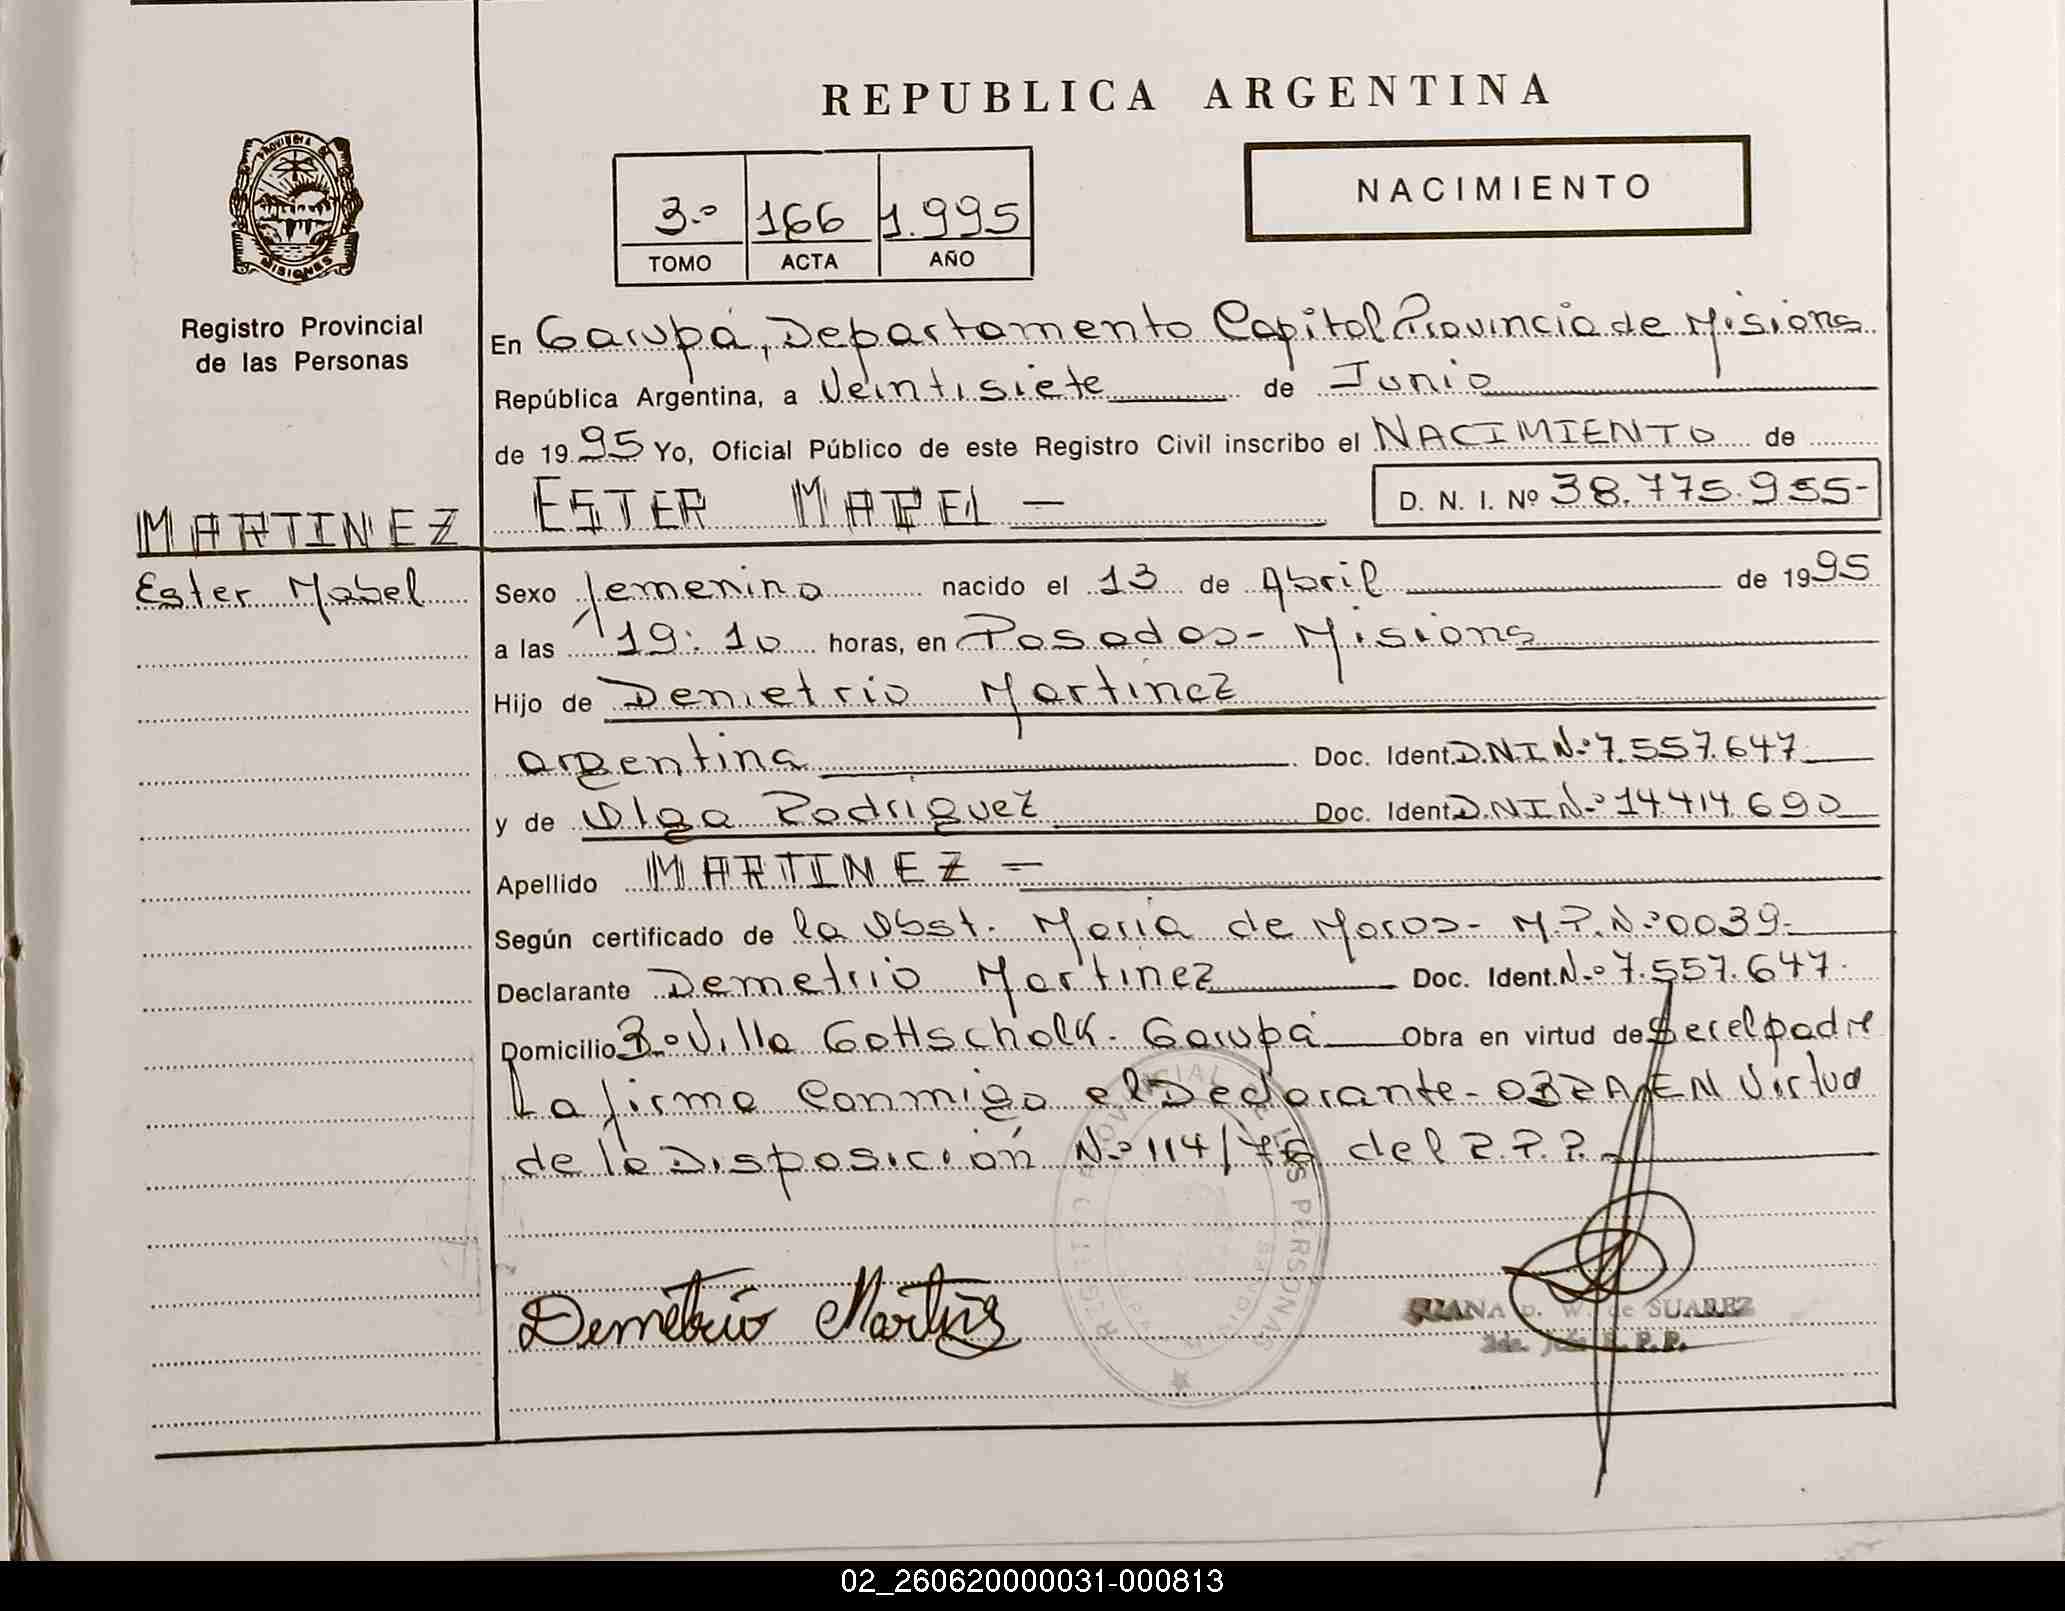 REPUBLICA ARGENTINA
PROVINCIA DE
MISIONES
Registro Provincial
de las Personas
NACIMIENTO
3.º 166 1.995
TOMO ACTA AÑO
En Garupá, Departamento Capital Provincia de Misions
República Argentina, a Veintisiete de Junio
de 1995 Yo, Oficial Público de este Registro Civil inscribo el NACIMIENTO de
ESTER MABEL — D. N. I. Nº 38.775.955-
MARTINEZ
Ester Mabel
Sexo femenino nacido el 13 de Abril de 1995
a las 19:10 horas, en Posadas- Misions
Hijo de Demetrio Martinez
argentina Doc. Ident. D.N.I. N.º 7.557.647
y de Olga Rodriguez Doc. Ident. D.N.I. N.º 14.414.690
Apellido MARTINEZ —
Según certificado de la Obst. Maria de Moros- M.P.N.º 0039-
Declarante Demetrio Martinez Doc. Ident. N.º 7.557.647.
Domicilio B.º Villa Gottschalk. Garupá Obra en virtud de Ser el padre
La firma Conmigo el Declarante- OBRA EN Virtud
de la Disposición N.º 114/ del R.P.P.
REGISTRO PROVINCIAL DE LAS PERSONAS
Demetrio Martinez
JUANA p. W. de SUAREZ
R.P.P.
02_260620000031-000813